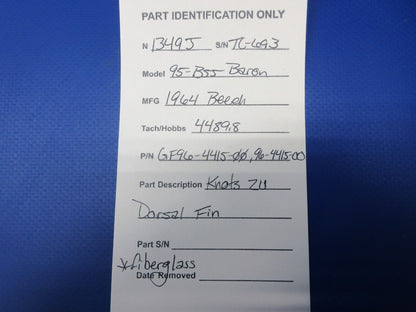 PART IDENTIFICATION ONLY
N 1349J S/N TC-693
Model 95-B55 Baron
MFG 1964 Beech
Tach/Hobbs 4489.8
P/N GF96-4415-00, 96-4415-00
Part Description Knots 2U
Dorsal Fin
Part S/N
*fiberglass
Date Removed